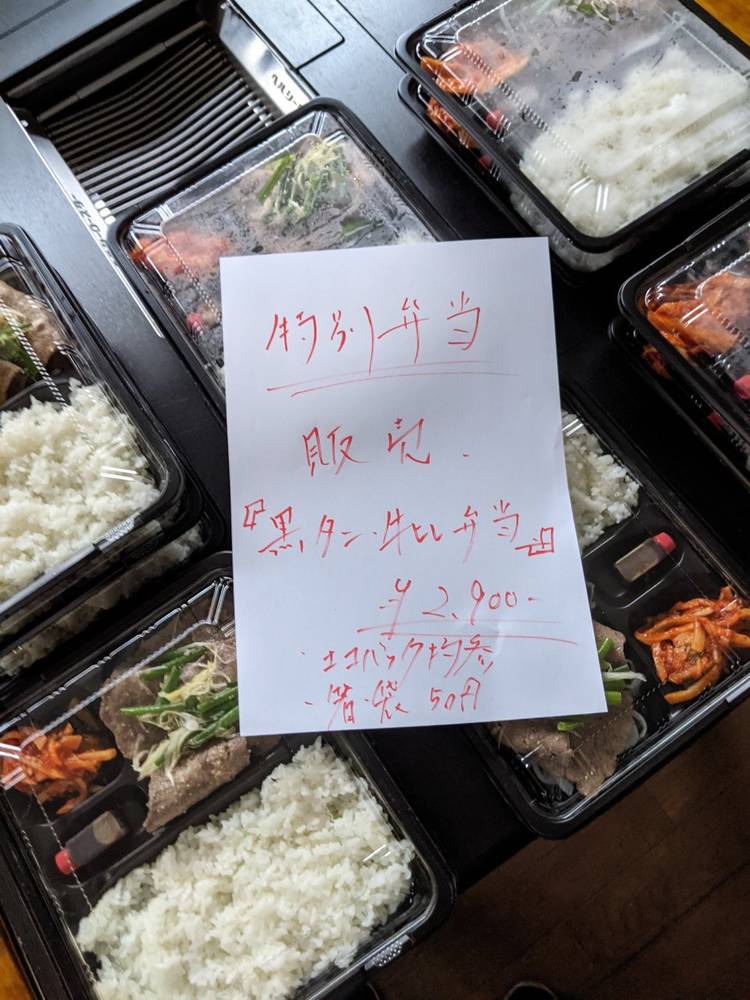 特別弁当
販売.
『黒タン・牛ヒレ弁当』
¥2,900-
・エコバック持参
・箸・袋 50円